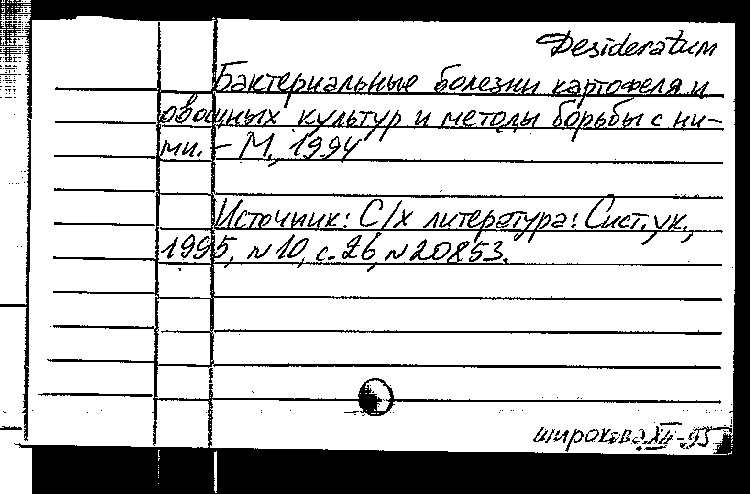 Desideratum
Бактериальные болезни картофеля и
овощных культур и методы борьбы с ни-
ми. - М., 1994
Источник: С/х литература: Сист. ук.,
1995, № 10, с. 26, № 20853.
широкова XII-95